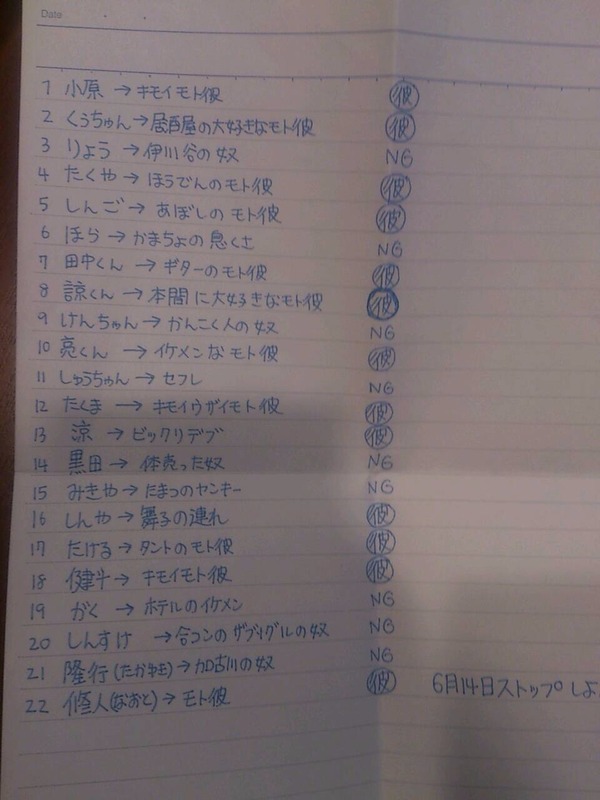 Date
1 小原 → キモイモト彼 彼
2 くぅちゅん → 居酒屋の大好きなモト彼 彼
3 りょう → 伊川谷の奴 NG
4 たくや → ほうでんのモト彼 彼
5 しんご → あぼしのモト彼 彼
6 ほら → かまちょの息くさ NG
7 田中くん → ギターのモト彼 彼
8 諒くん → 本間に大好きなモト彼 彼
9 けんちゃん → かんこく人の奴 NG
10 亮くん → イケメンなモト彼 彼
11 しゅうちゃん → セフレ NG
12 たくま → キモイウザイモト彼 彼
13 涼 → ビックリデブ 彼
14 黒田 → 体売った奴 NG
15 みきや → たまつのヤンキー NG
16 しんや → 舞子の連れ 彼
17 たける → タントのモト彼 彼
18 健斗 → キモイモト彼 彼
19 がく → ホテルのイケメン NG
20 しんすけ → 合コンの グルの奴 NG
21 隆行(たかゆき) → 加古川の奴 NG
22 脩人(なおと) → モト彼 彼 6月14日ストップしよ